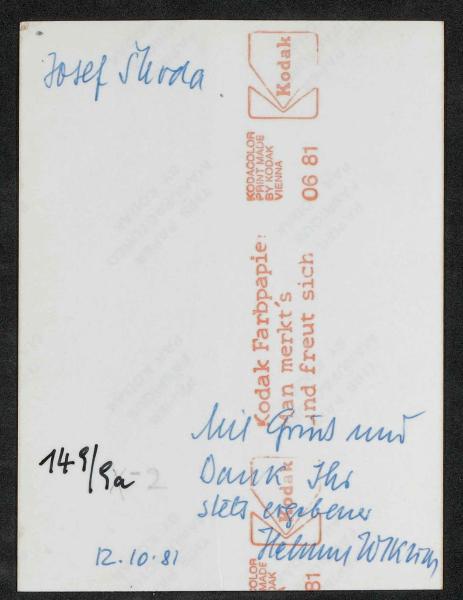 Josef Škoda
Kodak
KODACOLOR
PRINT MADE
BY KODAK
VIENNA
06 81
Kodak Farbpapier:
man merkt's
und freut sich
Mit Gruss und
Dank Ihr
stets ergebener
Helmut
149/9a
-2
12.10.81
Kodak
COLOR
MADE
DAK
81